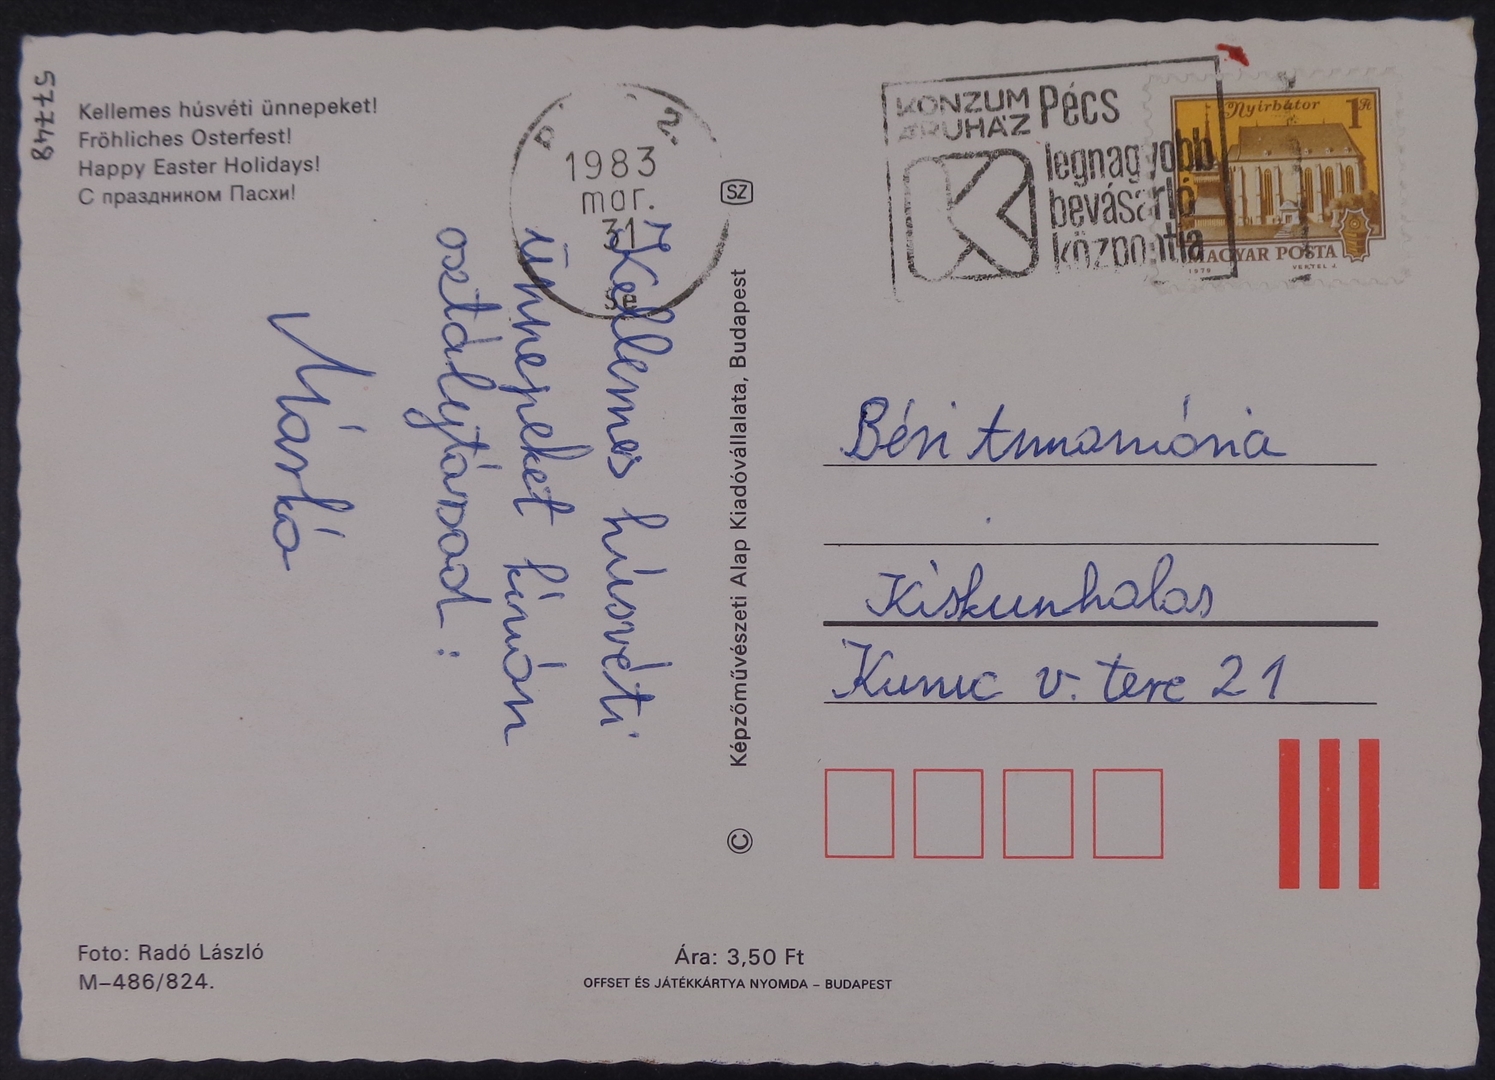 57748
Kellemes húsvéti ünnepeket!
Fröhliches Osterfest!
Happy Easter Holidays!
С праздником Пасхи!
1983
mar.
31
KONZUM
ÁRUHÁZ
Pécs
legnagyobb
bevásárló
központja
Nyírbátor 1 Ft
MAGYAR POSTA
1979 VERTEL J.
SZ
Kellemes húsvéti
ünnepeket kíván
osztálytársad:
Márkó
Képzőművészeti Alap Kiadóvállalata, Budapest
©
Béri Annamária
Kiskunhalas
Kunuc v. tere 21
Foto: Radó László
M–486/824.
Ára: 3,50 Ft
OFFSET ÉS JÁTÉKKÁRTYA NYOMDA – BUDAPEST